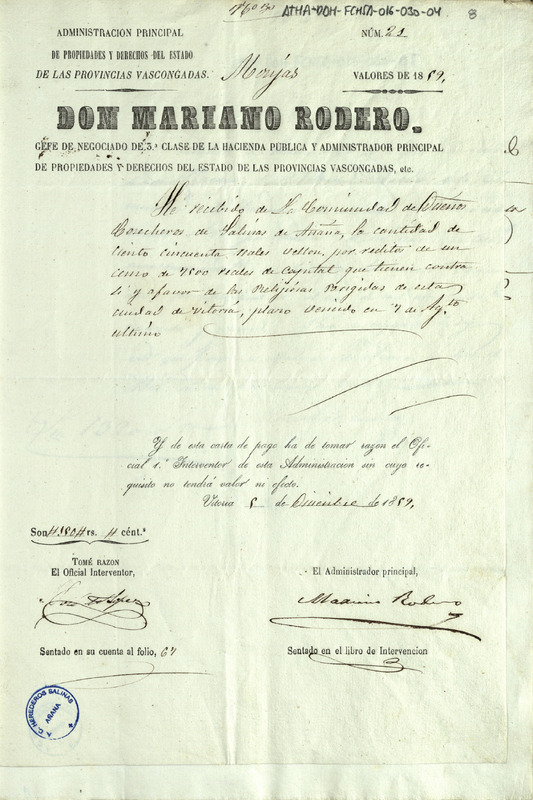 ATHA-DDH-FCHSA-016-030-04 8
ADMINISTRACION PRINCIPAL
DE PROPIEDADES Y DERECHOS DEL ESTADO
DE LAS PROVINCIAS VASCONGADAS.
Monjas
NÚM. 21
VALORES DE 1859.
DON MARIANO RODERO.
GEFE DE NEGOCIADO DE 3.ª CLASE DE LA HACIENDA PUBLICA Y ADMINISTRADOR PRINCIPAL
DE PROPIEDADES Y DERECHOS DEL ESTADO DE LAS PROVINCIAS VASCONGADAS, etc.
He recibido de La Comunidad de Dueños
Cosecheros de Salinas de Añana, la cantidad de
ciento cincuenta reales vellon, por reditos de un
censo de 7500 reales de capital que tienen contra
si y a favor de las Religiosas Brigidas de esta
ciudad de Vitoria, plazo vencido en 7 de Ag.to
ultimo
Y de esta carta de pago ha de tomar razon el Ofi-
cial 1.º Interventor de esta Administracion sin cuyo re-
quisito no tendrá valor ni efecto.
Vitoria 5 de Diciembre de 1859,
Son rs. cént.s
TOMÉ RAZON
El Oficial Interventor,
El Administrador principal,
Mariano Rodero
Sentado en su cuenta al folio, 64
Sentado en el libro de Intervencion
A. C. HEREDEROS SALINAS
AÑANA